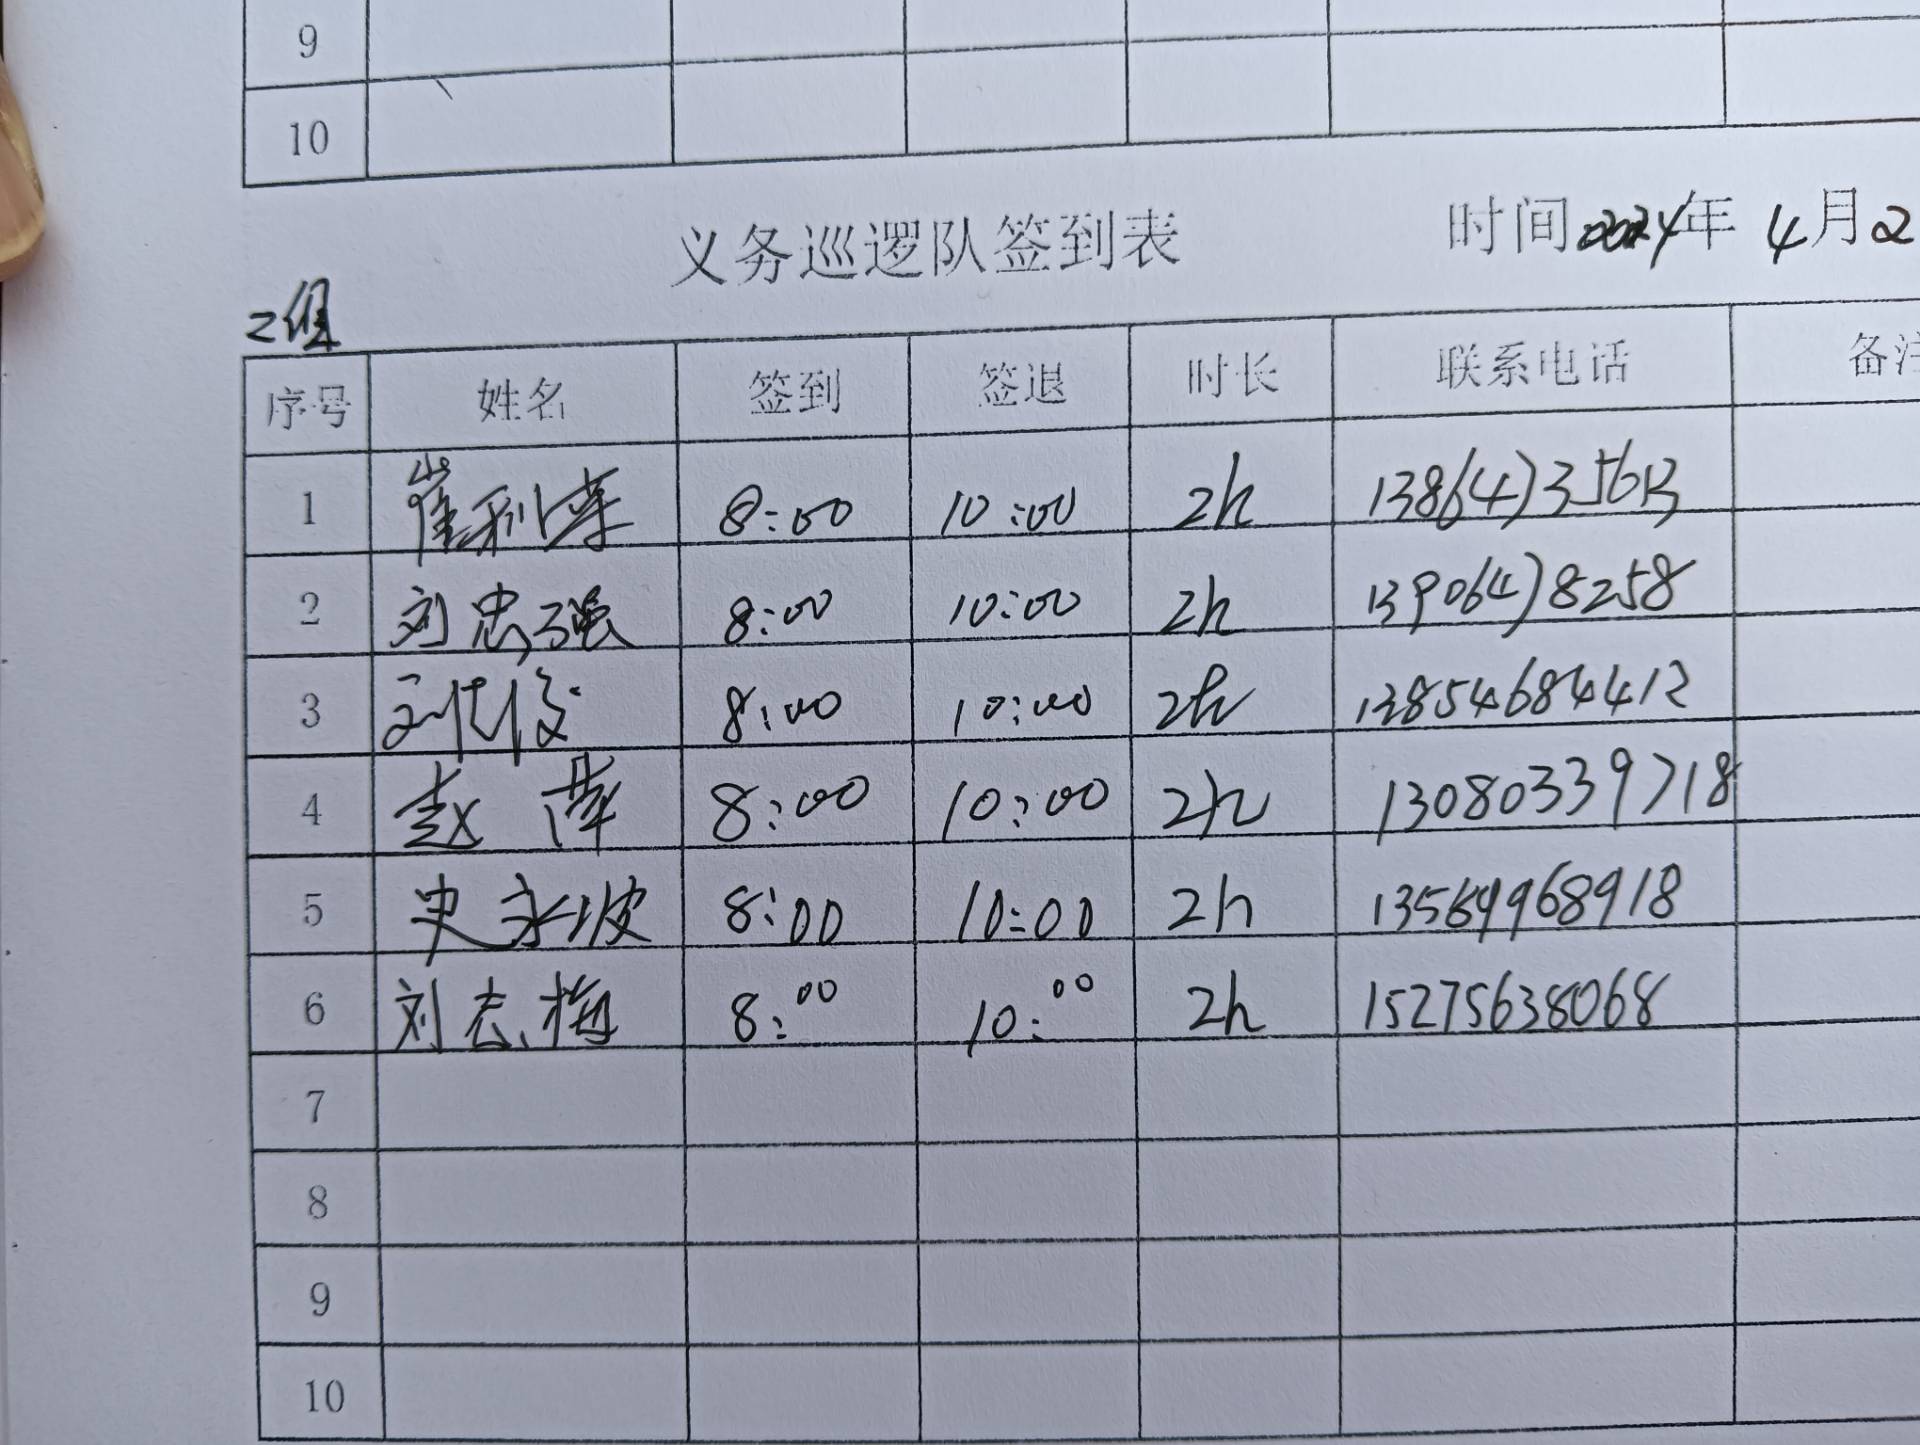 9
10
义务巡逻队签到表 时间2024年 4月2
2组
序号 姓名 签到 签退 时长 联系电话 备注
1 崔利萍 8:00 10:00 2h
2 刘忠强 8:00 10:00 2h 13906478258
3 8:00 10:00 2h 13854684412
4 赵萍 8:00 10:00 2h 13080339718
5 史永波 8:00 10:00 2h
6 刘志梅 8:00 10:00 2h 15275638068
7
8
9
10